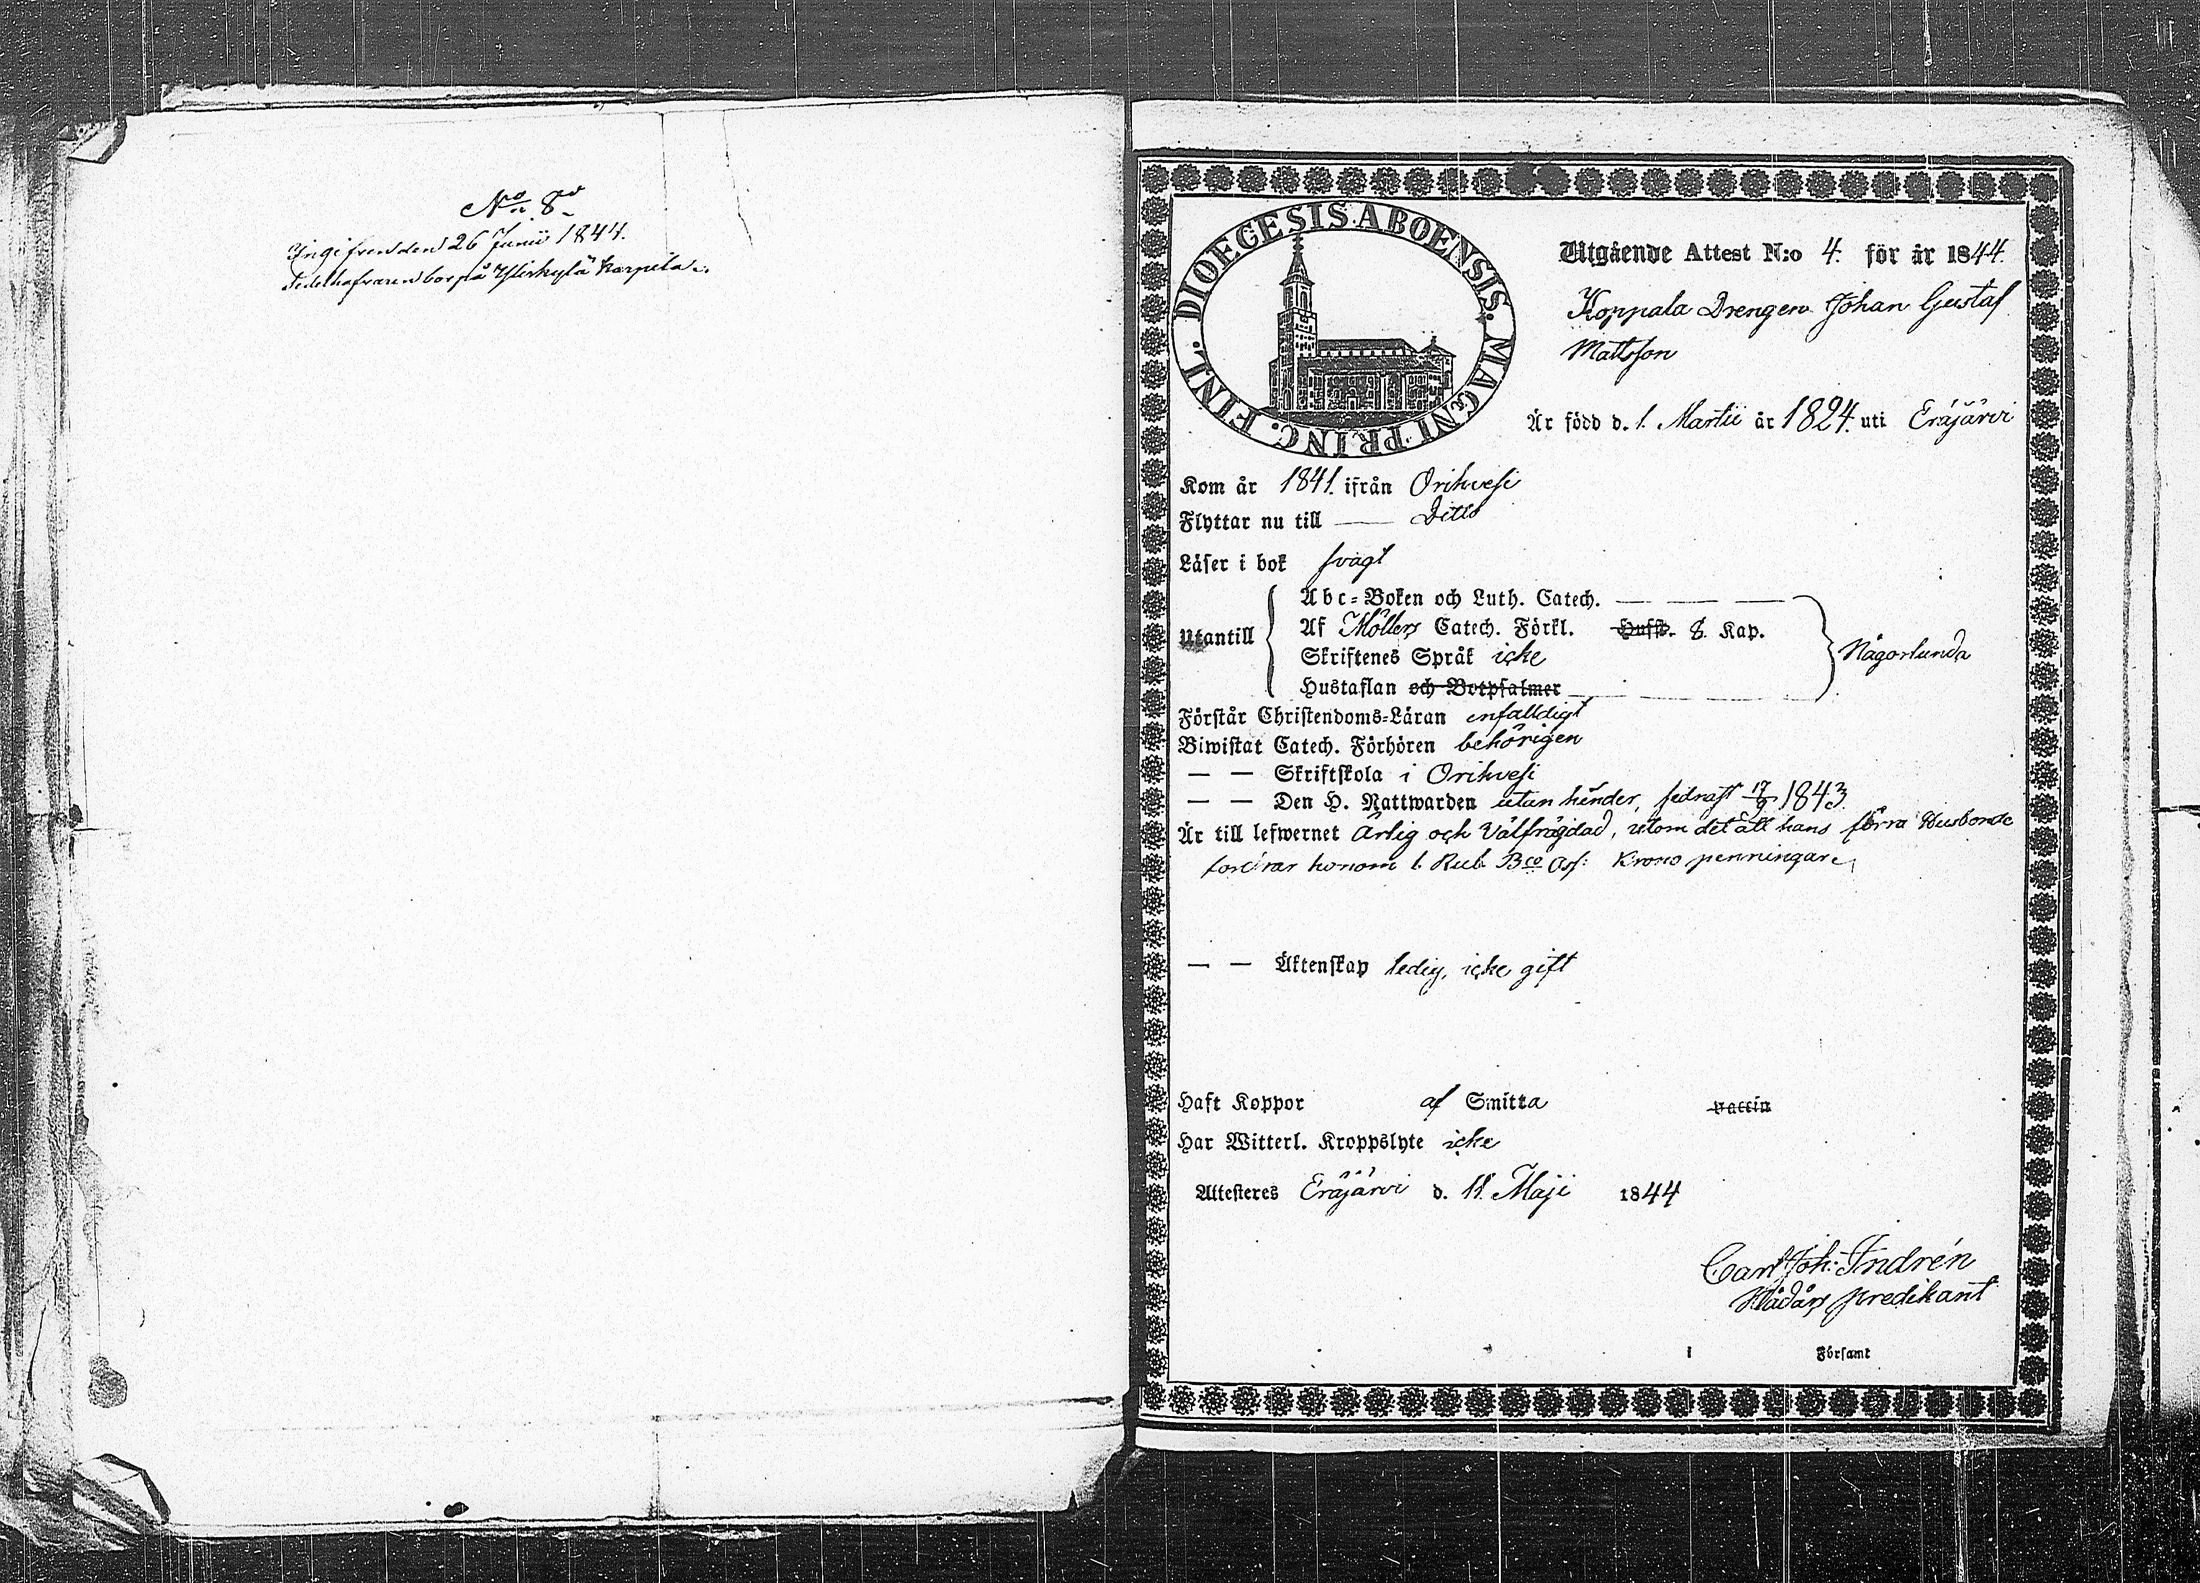 No 8.
Ingifven den 26 Junii 1844.
Sedelhafvaren bor på Yliskylä Karpila.
DIOECESIS ABOENSIS. MAGNI PRINC. FINL.
Utgående Attest N:o 4. för år 1844.
Koppala Drengen Johan Gustaf
Matsson
Är född d. 1. Martii år 1824. uti Eräjärvi
Kom år 1841. ifrån Orihvesi
Flyttar nu till —— Ditto
Läser i bok svagt
Utantill
Abc-Boken och Luth. Catech. — — —
Af Möllers Catech. Förkl. Hufst. 8. Kap.
Skriftenes Språk icke
Hustaflan och Botpsalmer — — —
Någorlunda
Förstår Christendoms-Läran enfalldigt
Biwistat Catech. Förhören behörigen
— — Skriftskola i Orihvesi
— — Den H. Nattwarden utan hinder, sednast 17/9 1843
Är till lefwernet Ärlig och Välfrägdad, utom det att hans förra Husbonde
fordrar honom 1. Rub. Bco Ass: Krono penningar
— — Äktenskap ledig, icke gift
Haft Koppor af Smitta vaccin
Har Witterl. Kroppslyte icke
Attesteres Eräjärvi d. 11. Maji 1844
Carl Joh: Indrén
Nådårs predikant
i Församl